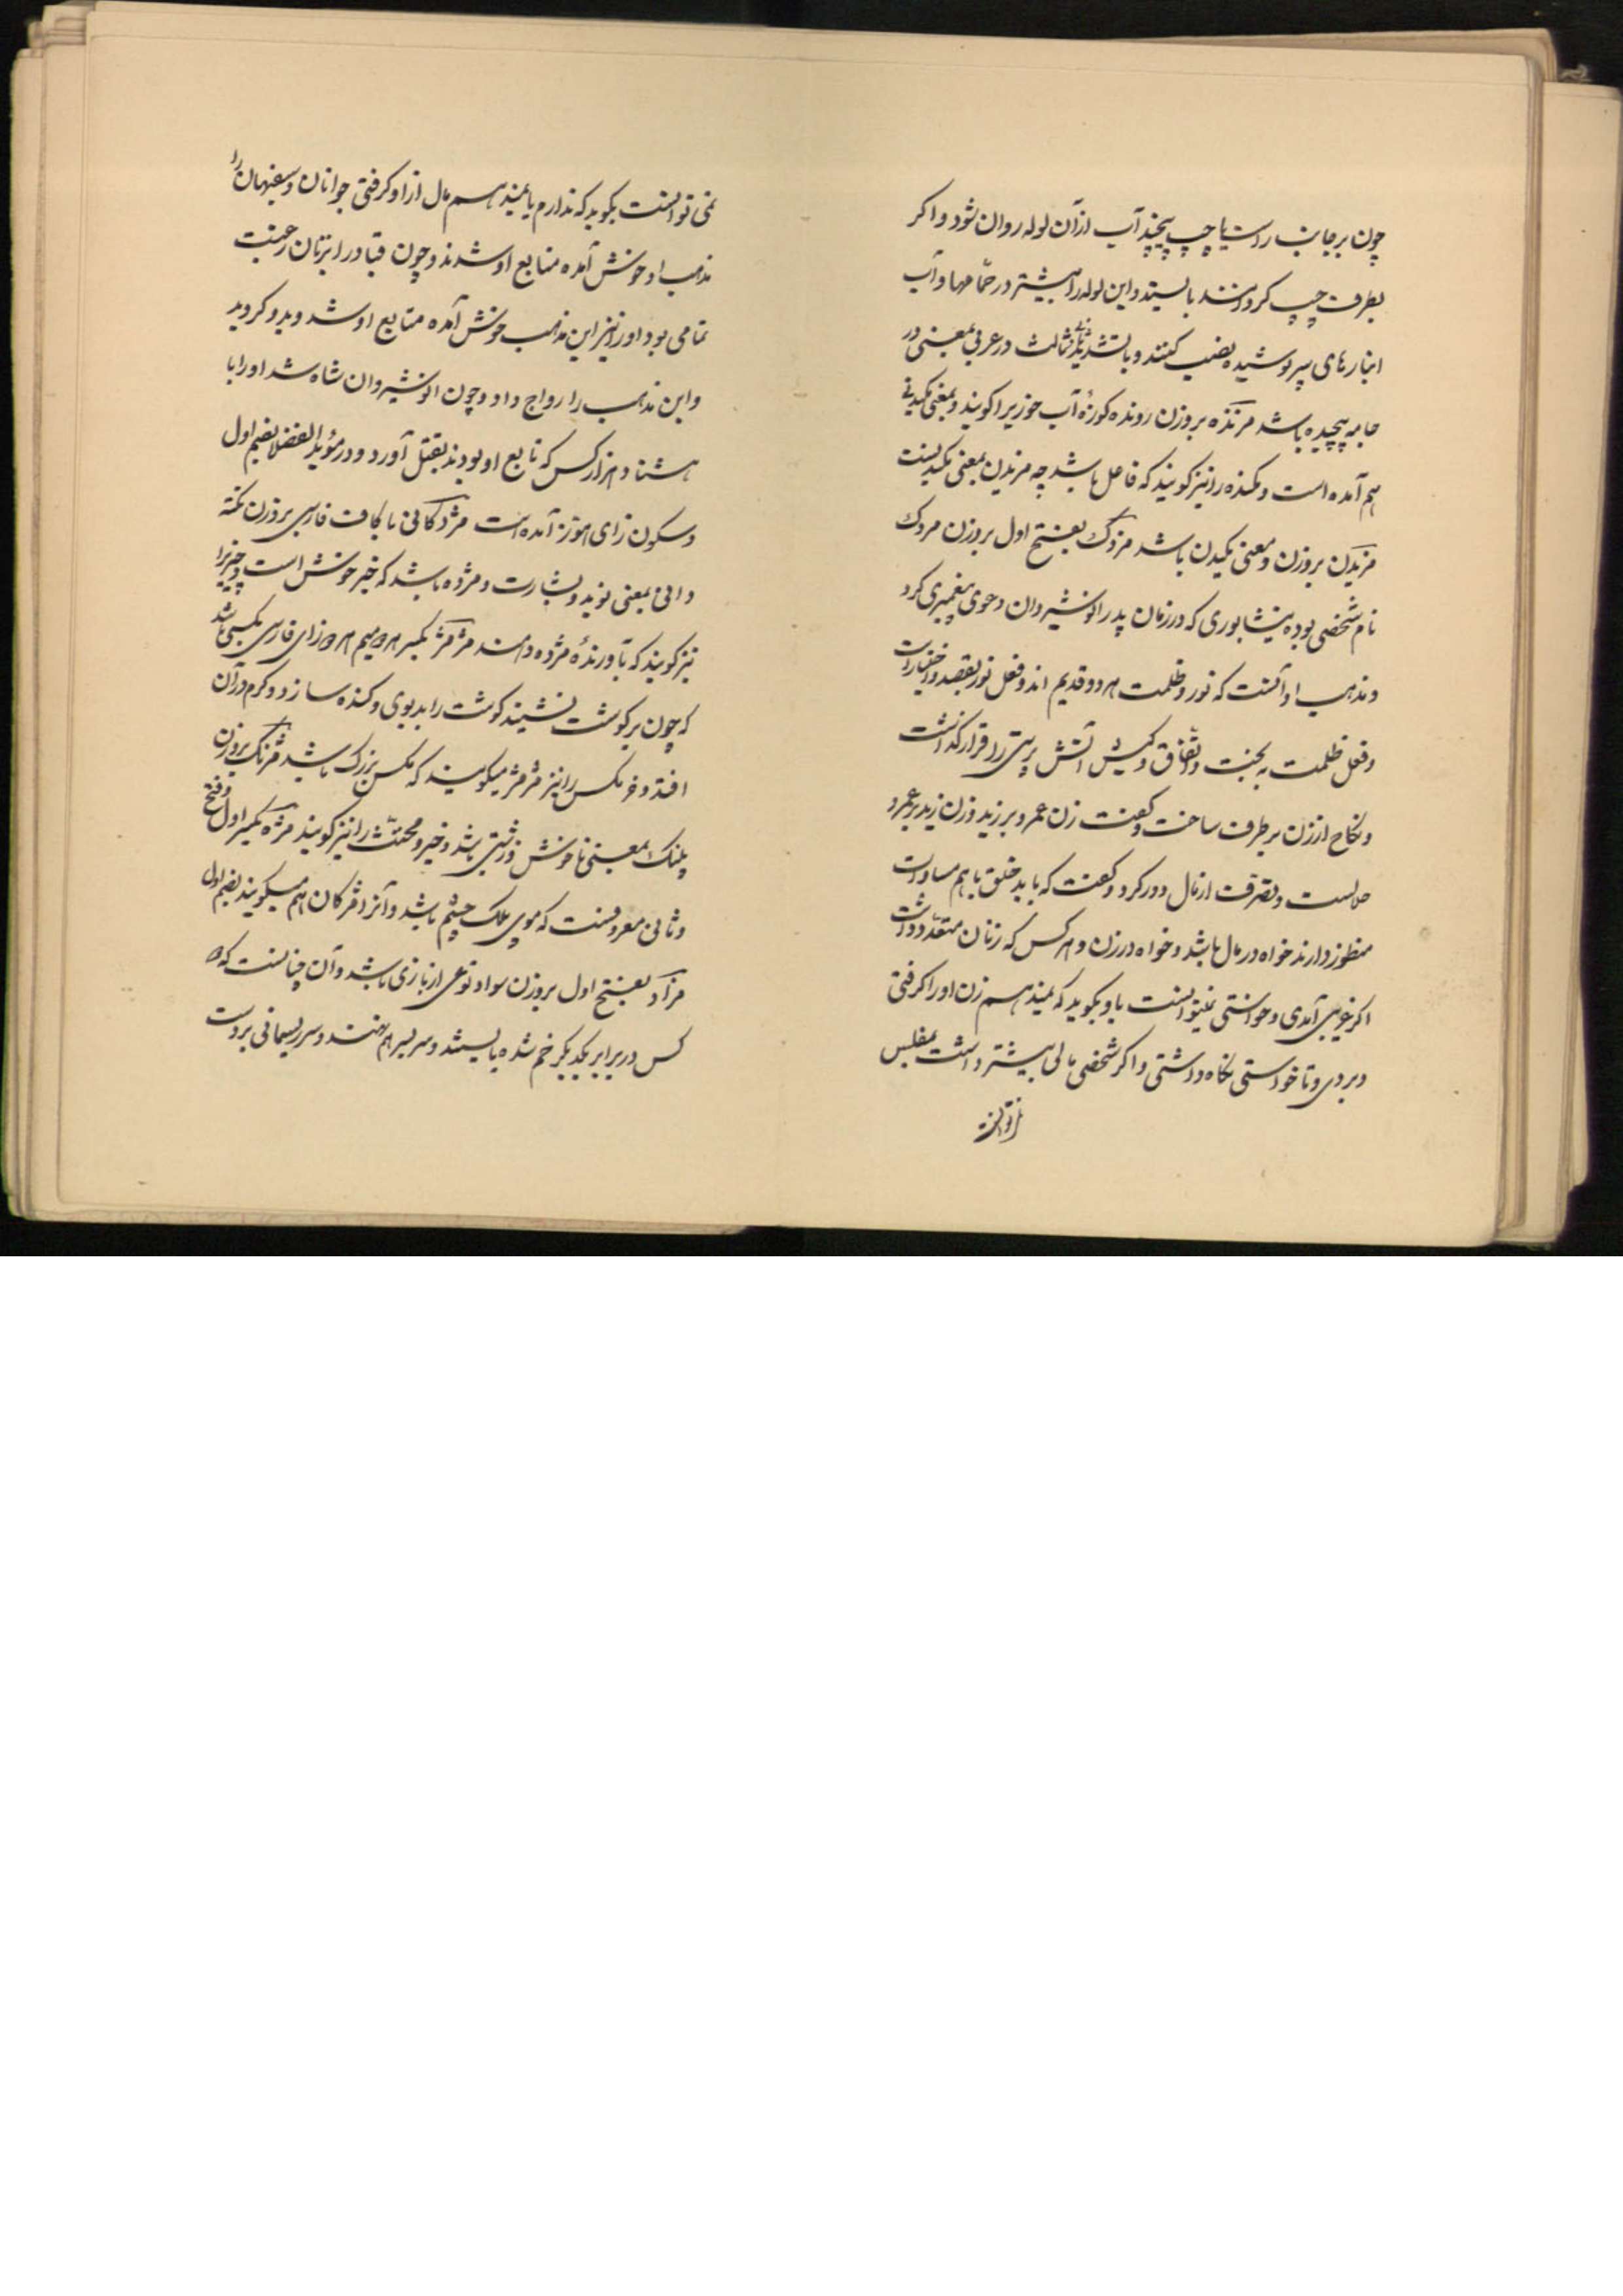 چون بر جانب راست یا چپ پیچند آب ازآن لوله روان شود و اکر
بطرف چپ کردانند بایستد و این لوله را بیشتر در حمّامها و آب
انبارهای سرپوشیده نصب کنند و با تشدید ثالث در عربی بمعنی در
جامه پیچیده باشد مزنده بروزن رونده کوزهٔ آب خوری را کویند و بمعنی مکیدنی
هم آمده است و مکنده را نیز کویند که فاعل باشد چه مزیدن بمعنی مکیدنست
مزیدن بروزن و معنی مکیدن باشد مزدک بفتح اول بروزن مردک
نام شخصی بوده نیشابوری که در زمان پدر انوشیروان دعوی پیغمبری کرد
و مذهب او آنست که نور و ظلمت هر دو قدیم اند و فعل نور بقصد و اختیار است
و فعل ظلمت به بخت و اتفاق و کیش آتش پرستی را قرار کذاشت
و نکاح از زن برطرف ساخت و کفت زن عمرو بر زید و زن زید بر عمرو
حلالست و تصرف از مال دور کرد و کفت که باید خلق با هم مساوات
منظور دارند خواه در مال باشد و خواه در زن و هر کس که زنان متعدّد داشت
اکر غریبی آمدی و خواستی نمیتوانست باو بکوید که نمیدهم زن او را کرفتی
و بردی و تا خواستی نکاه داشتی و اکر شخصی مالی بیشتر داشت مفلس
نمی توانست بکوید که ندارم یا نمیدهم مال از او کرفتی جوانان و سفیهان را
مذهب او خوش آمده متابع او شدند و چون قباد را بزنان رغبت
تمامی بود او را نیز این مذهب خوش آمده متابع او شد و بدو کروید
و این مذهب را رواج داد و چون انوشیروان شاه شد او را با
هشتاد هزار کس که تابع او بودند بقتل آورد و در مؤید الفضلا بضم اول
و سکون زای هوز آمده است مژدکانی با کاف فارسی بروزن نکته
دانی بمعنی نوید و بشارت و مژده باشد که خبر خوش است و چیزی را
نیز کویند که بآورندهٔ مژده دهند مژمژ بکسر هر دو میم هر دو زای فارسی مکسی باشد
که چون بر کوشت نشیند کوشت را بدبوی و کنده سازد و کرم در آن
افتد و خرمکس را نیز مژمژ میکویند که مکس بزرک باشد مژنک بروزن
پلنک بمعنی ناخوش و زشتی باشد و خیز و مخنّث را نیز کویند مژه بکسر اول و فتح
و ثانی معروفست که موی پلک چشم باشد و آنرا مژکان هم میکویند بضم اول
مزآد بفتح اول بروزن سواد نوعی از بازی باشد و آن چنانست که دو
کس در برابر یکدیکر خم شده بایستند و سر بسر هم نهند و سر ریسمانی بر دست